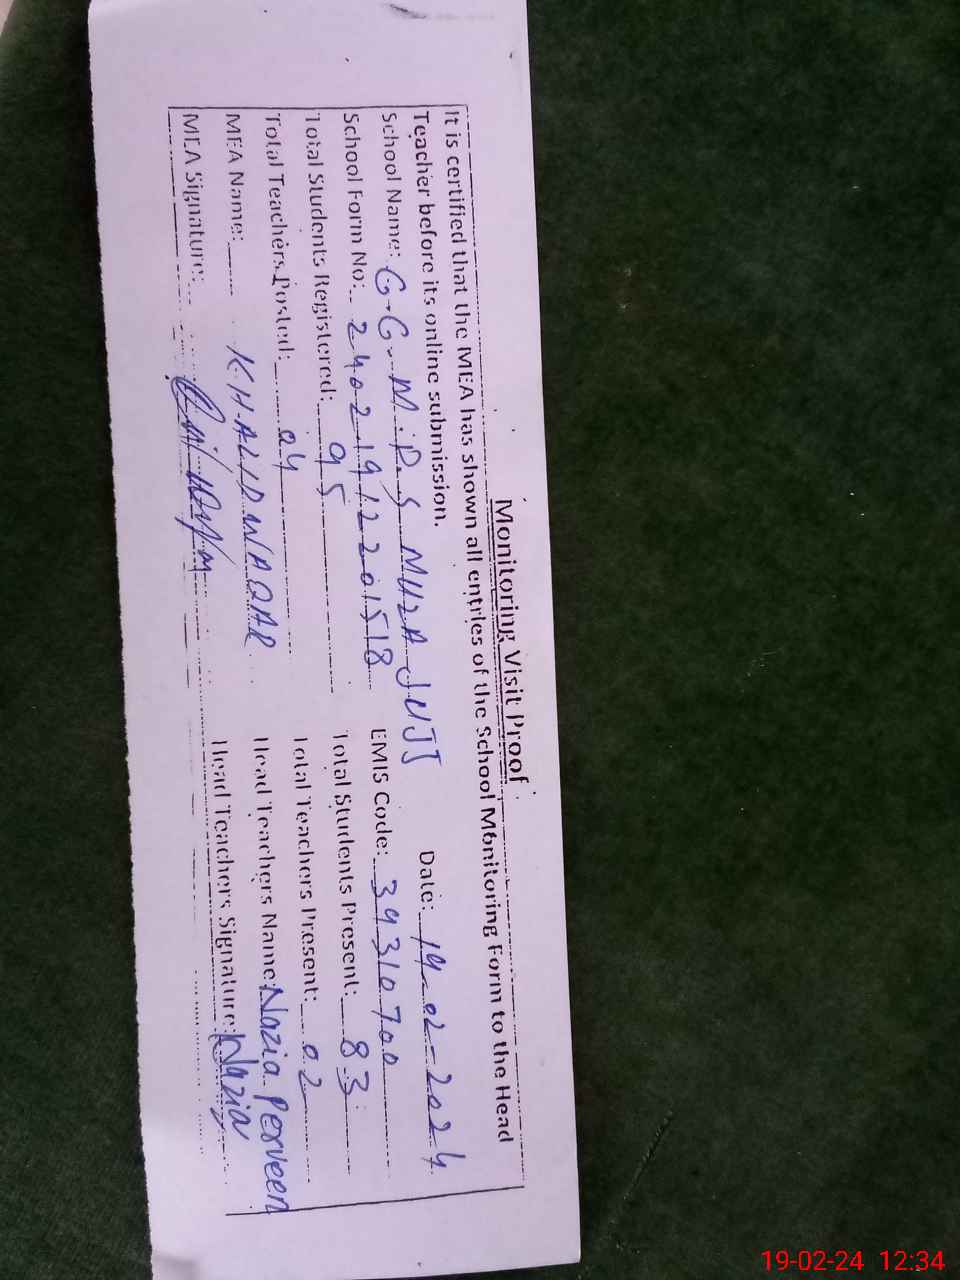 Monitoring Visit Proof
It is certified that the MEA has shown all entries of the School Monitoring Form to the Head
Teacher before its online submission.
Date: 19-02-2024
School Name: G.G.M.P.S MUZA JUJJ
School Form No: 24021912201518 EMIS Code: 39310700
Total Students Registered: 95 Total Students Present: 83
Total Teachers Posted: 04 Total Teachers Present: 02
MEA Name: KHALID WAQAR Head Teachers Name: Nazia Perveen
MEA Signature: Head Teachers Signature: Nazia
19-02-24 12:34